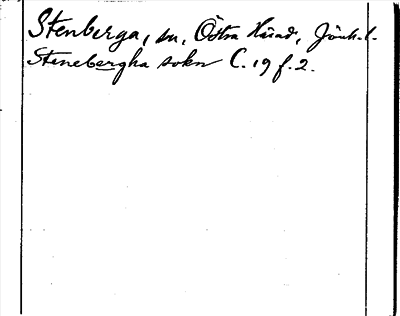 Stenberga, sn, Östra Härad, Jönk. l.
Stenebergha sokn C. 19 f. 2.